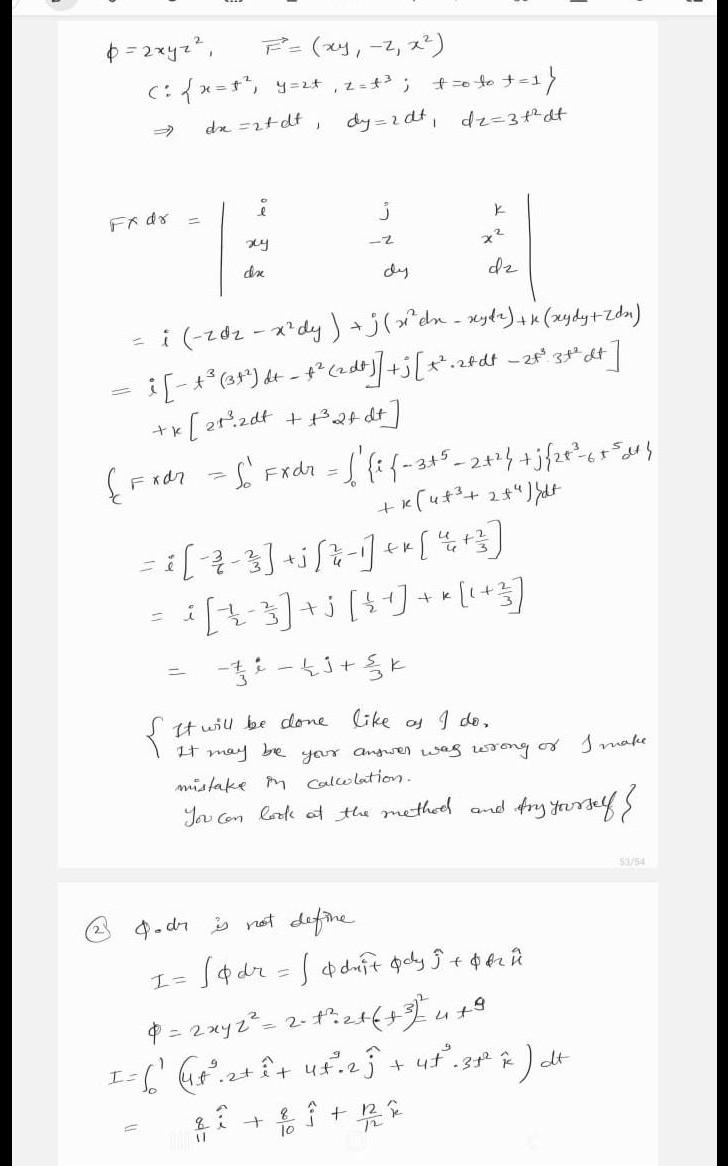 ϕ = 2xyz², F⃗ = (xy, -z, x²)
C: {x = t², y = 2t, z = t³ ; t=0 to t=1}
⇒ dx = 2t dt, dy = 2 dt, dz = 3t² dt
F×dr = | i j k
xy -z x²
dx dy dz |
= i (-zdz - x²dy) + j(x²dx - xydz) + k(xydy + zdx)
= i [-t³(3t²)dt - t²(2dt)] + j[t².2tdt - 2t³ 3t² dt]
+ k[2t³.2dt + t³ 2t dt]
∫c F×dr = ∫₀¹ F×dr = ∫₀¹ {i{-3t⁵ - 2t²} + j{2t³ - 6t⁵ dt}
+ k(4t³ + 2t⁴)}dt
= i[-3/6 - 2/3] + j[2/4 - 1] + k[4/4 + 2/3]
= i[-1/2 - 2/3] + j[1/2 - 1] + k[1 + 2/3]
= -7/3 i - 1/2 j + 5/3 k
{ It will be done like as I do.
It may be your answer was wrong or I make
mistake in calculation.
You can look at the method and try yourself }
53/54
② ϕ.dr is not define
I = ∫ϕdr = ∫ ϕdx î + ϕdy ĵ + ϕdz k̂
ϕ = 2xyz² = 2. t². 2t (t³)² = 4t⁹
I = ∫₀¹ (4t⁹.2t î + 4t⁹.2 ĵ + 4t⁹.3t² k̂) dt
= 8/11 î + 8/10 ĵ + 12/12 k̂